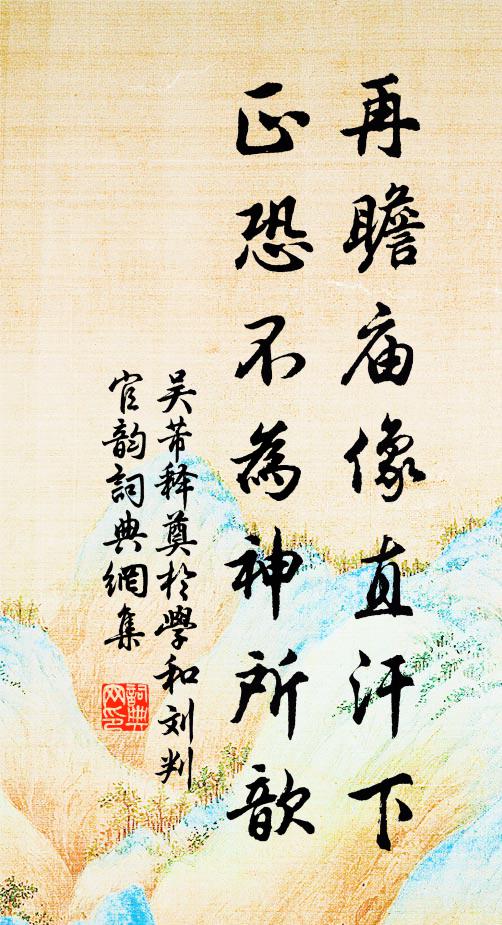 再瞻庙像直汗下
正恐不為神所歆
吴芾释奠於學和刘判
官韵詞典網集
詞典
网印